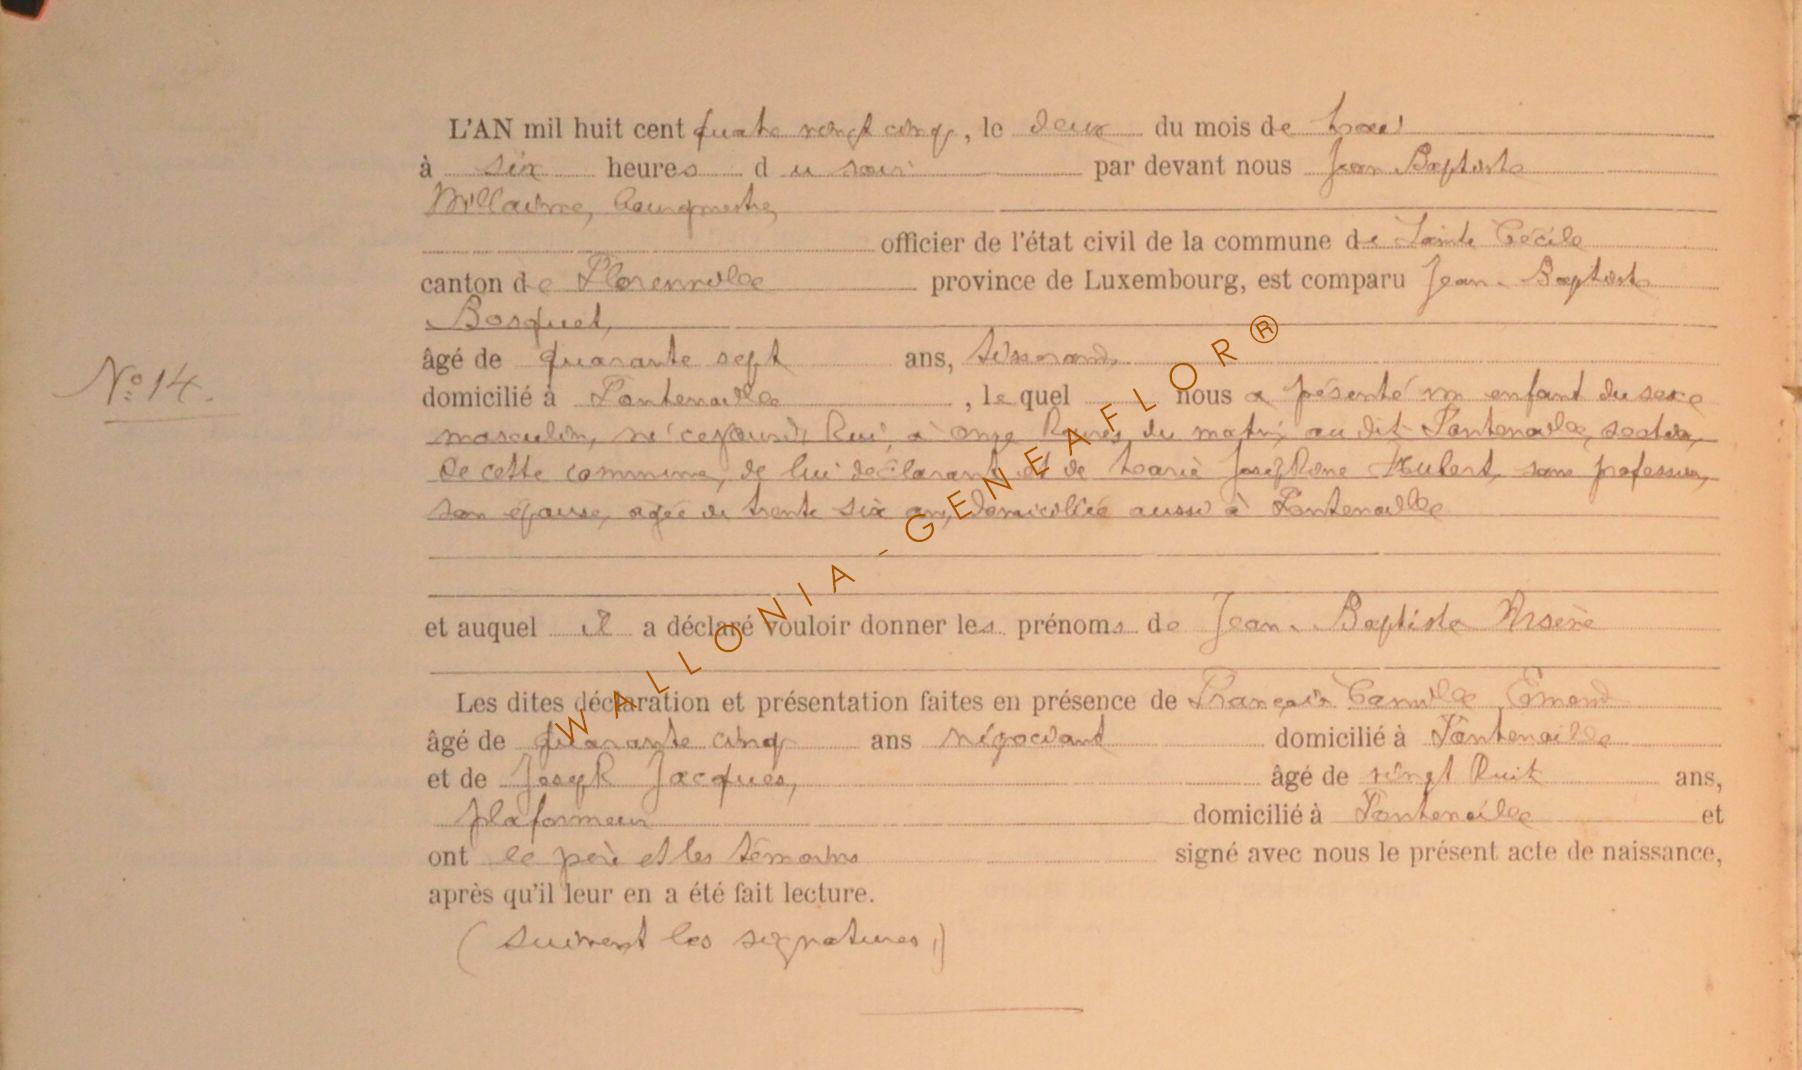 L'AN mil huit cent quatre vingt cinq, le deux du mois de mai
à six heures du soir par devant nous Jean Baptiste
Willaime, bourgmestre,
officier de l'état civil de la commune de Sainte Cécile
canton de Florenville province de Luxembourg, est comparu Jean-Baptiste
Bosquet,
âgé de quarante sept ans, tisserand,
N° 14.
domicilié à Fontenoille, lequel nous a présenté un enfant du sexe
masculin, né cejourd'hui, à onze heures du matin, au dit Fontenoille, section
de cette commune, de lui déclarant et de Marie Joséphine Hubert, sans profession,
son épouse, agée de trente six ans, domiciliée aussi à Fontenoille
et auquel il a déclaré vouloir donner les prénoms de Jean-Baptiste Arsène
Les dites déclaration et présentation faites en présence de François Camille Emond
âgé de quarante cinq ans négociant domicilié à Fontenoille
et de Joseph Jacques, âgé de vingt huit ans,
plafonneur domicilié à Fontenoille et
ont le père et les témoins signé avec nous le présent acte de naissance,
après qu'il leur en a été fait lecture.
(suivent les signatures)
WALLONIA-GENEAFLOR®